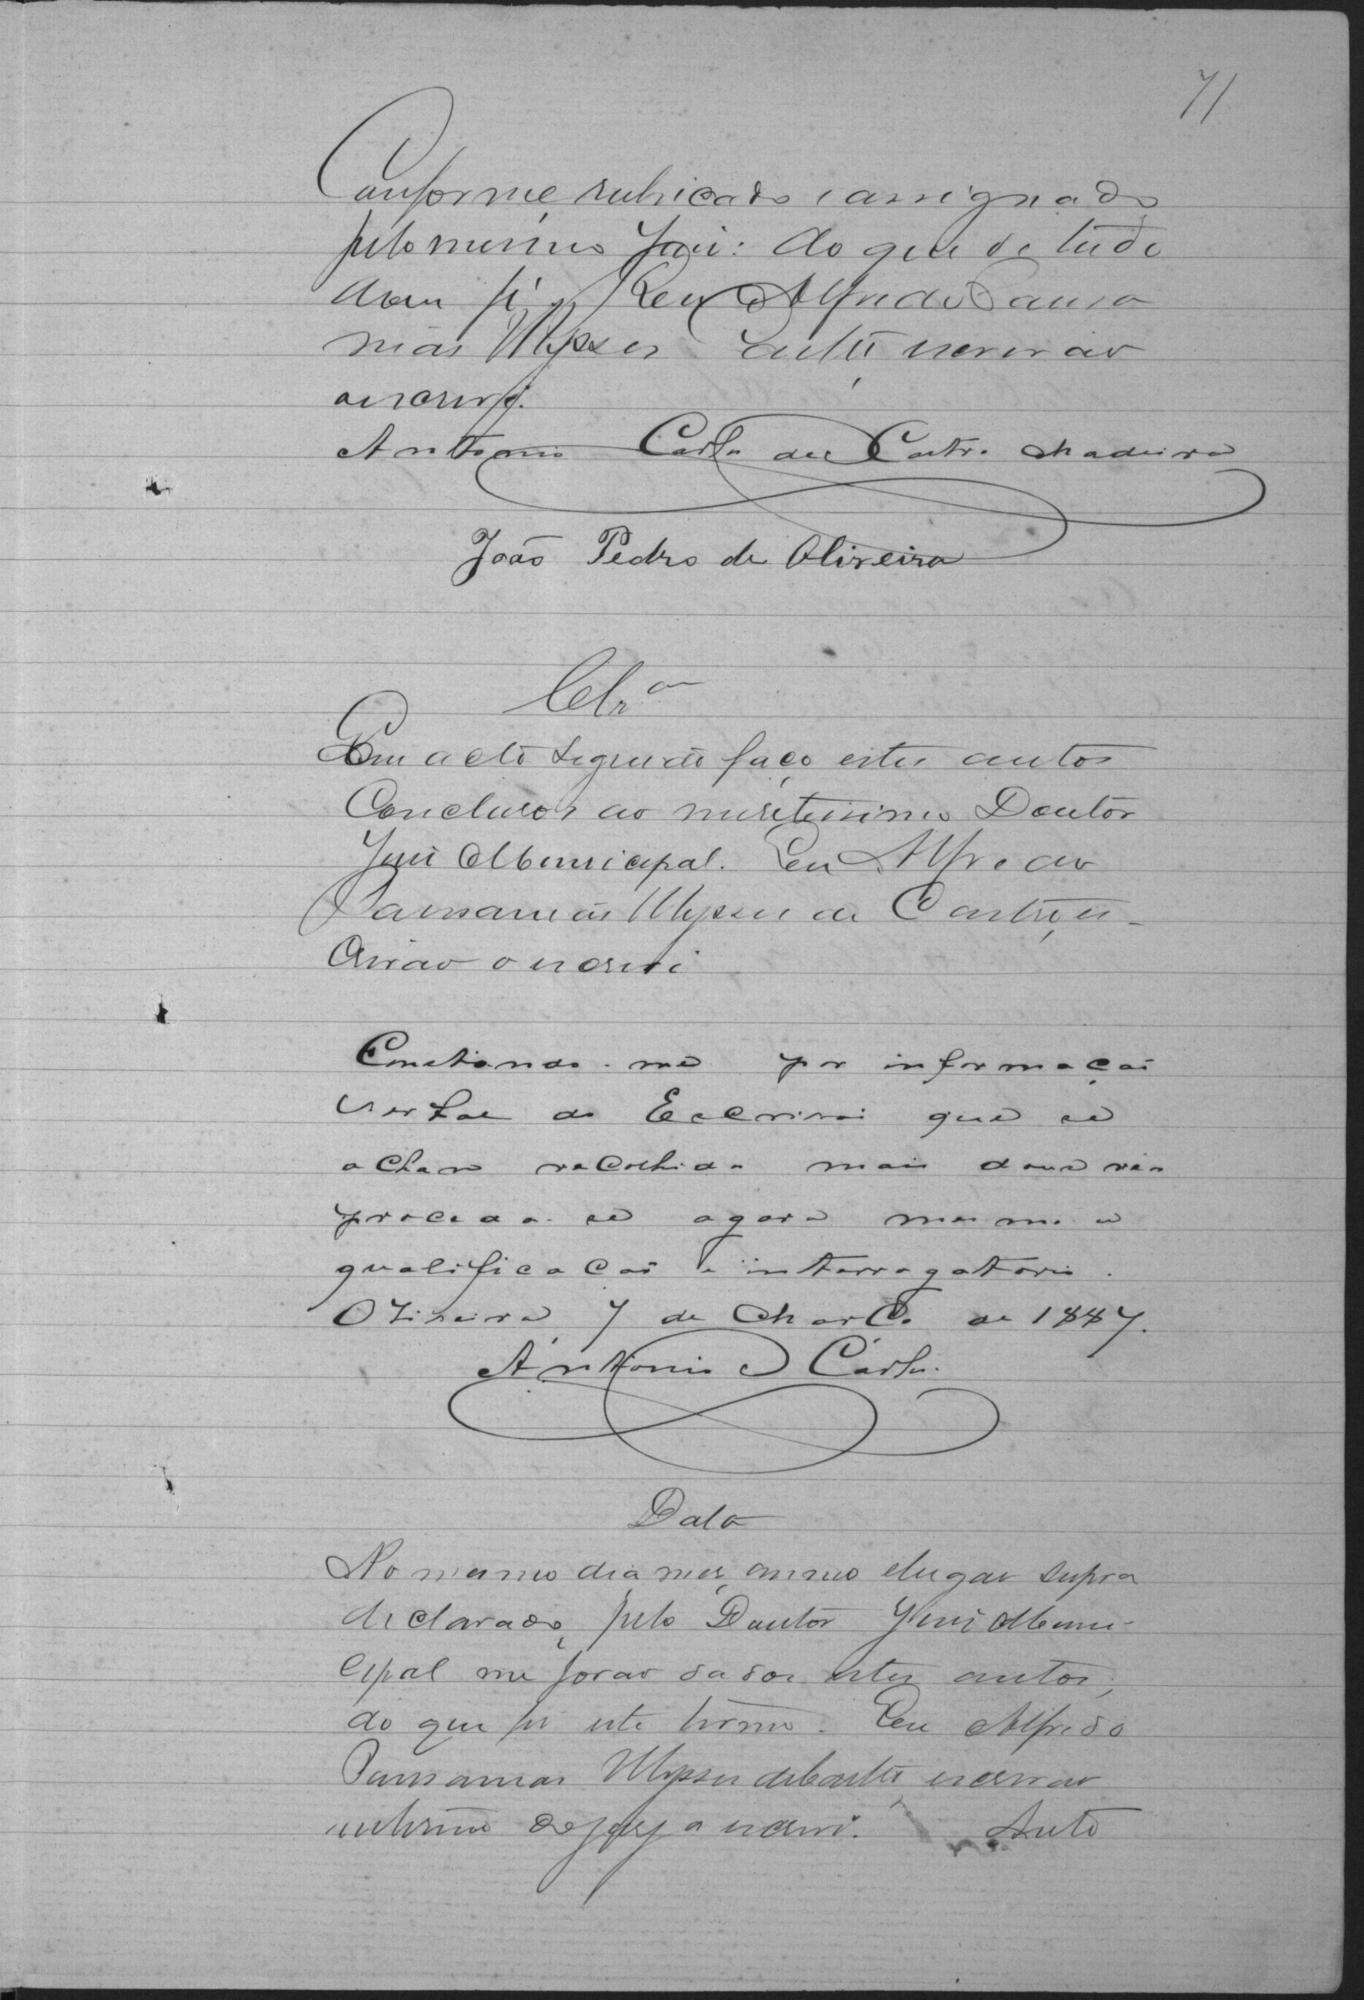 71
Conforme rubricado e assignado
pelo mesmo Juiz: do que de tudo
dou fé. Eu Alfredo Pausa
nias Ulysses Castro escrivão
o escrevi.
Antonio Carlos de Castro Madeira
João Pedro de Oliveira
Clz.am
Em acto seguido faço estes autos
Conclusos ao meretissimo Doutor
Juiz Municipal. Eu Alfredo
Pausanias Ulysses de Castro, es-
crivão o escrevi
Constando-me por informação
verbal do Escrivão que se
achão recolhidos mais dous réos
proceda-se agora mesmo a
qualificação e interrogatorio.
Oliveira, 7 de Março de 1887.
Antonio Carlos.
Data
No mesmo dia mes, anno e lugar supra
declarado, pelo Doutor Juiz Muni-
cipal me forão dados estes autos,
do que fiz este termo. Eu Alfredo
Pausanias Ulysses de Castro, escrivão
interino do jury o escrevi. Auto